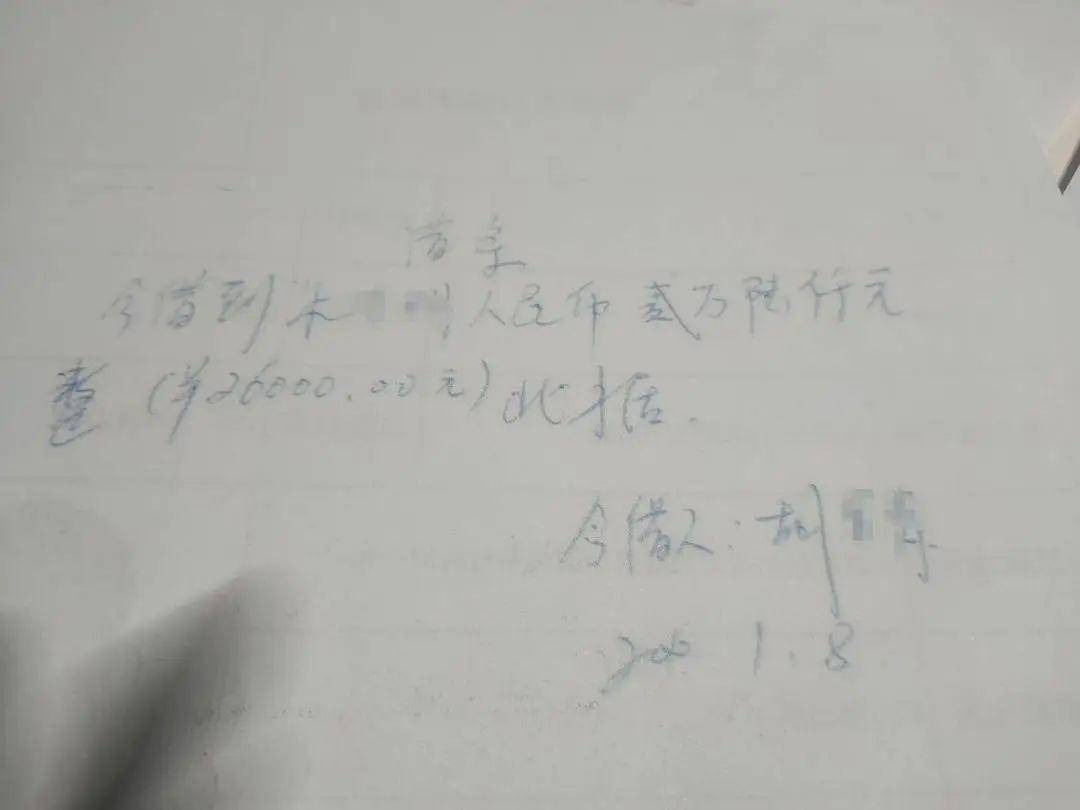 借条
今借到朱 人民币贰万陆仟元
整(￥26000.00元)此据.
今借人:胡
1.8